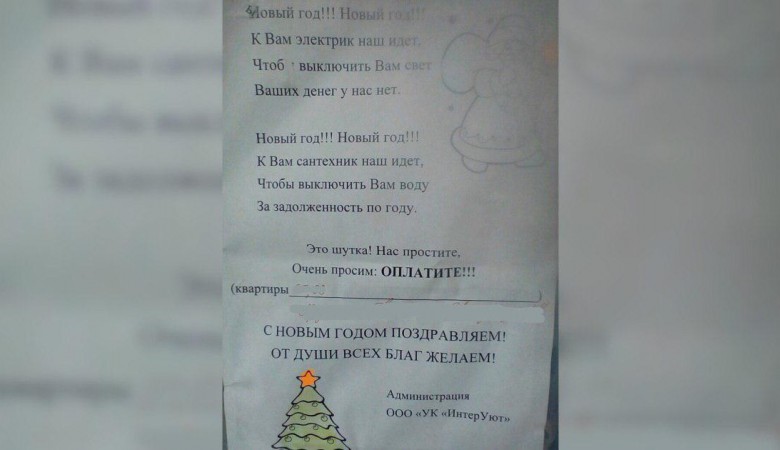 Новый год!!! Новый год!!!
К Вам электрик наш идет,
Чтоб выключить Вам свет
Ваших денег у нас нет.
Новый год!!! Новый год!!!
К Вам сантехник наш идет,
Чтобы выключить Вам воду
За задолженность по году.
Это шутка! Нас простите,
Очень просим: ОПЛАТИТЕ!!!
(квартиры )
С НОВЫМ ГОДОМ ПОЗДРАВЛЯЕМ!
ОТ ДУШИ ВСЕХ БЛАГ ЖЕЛАЕМ!
Администрация
ООО «УК «ИнтерУют»